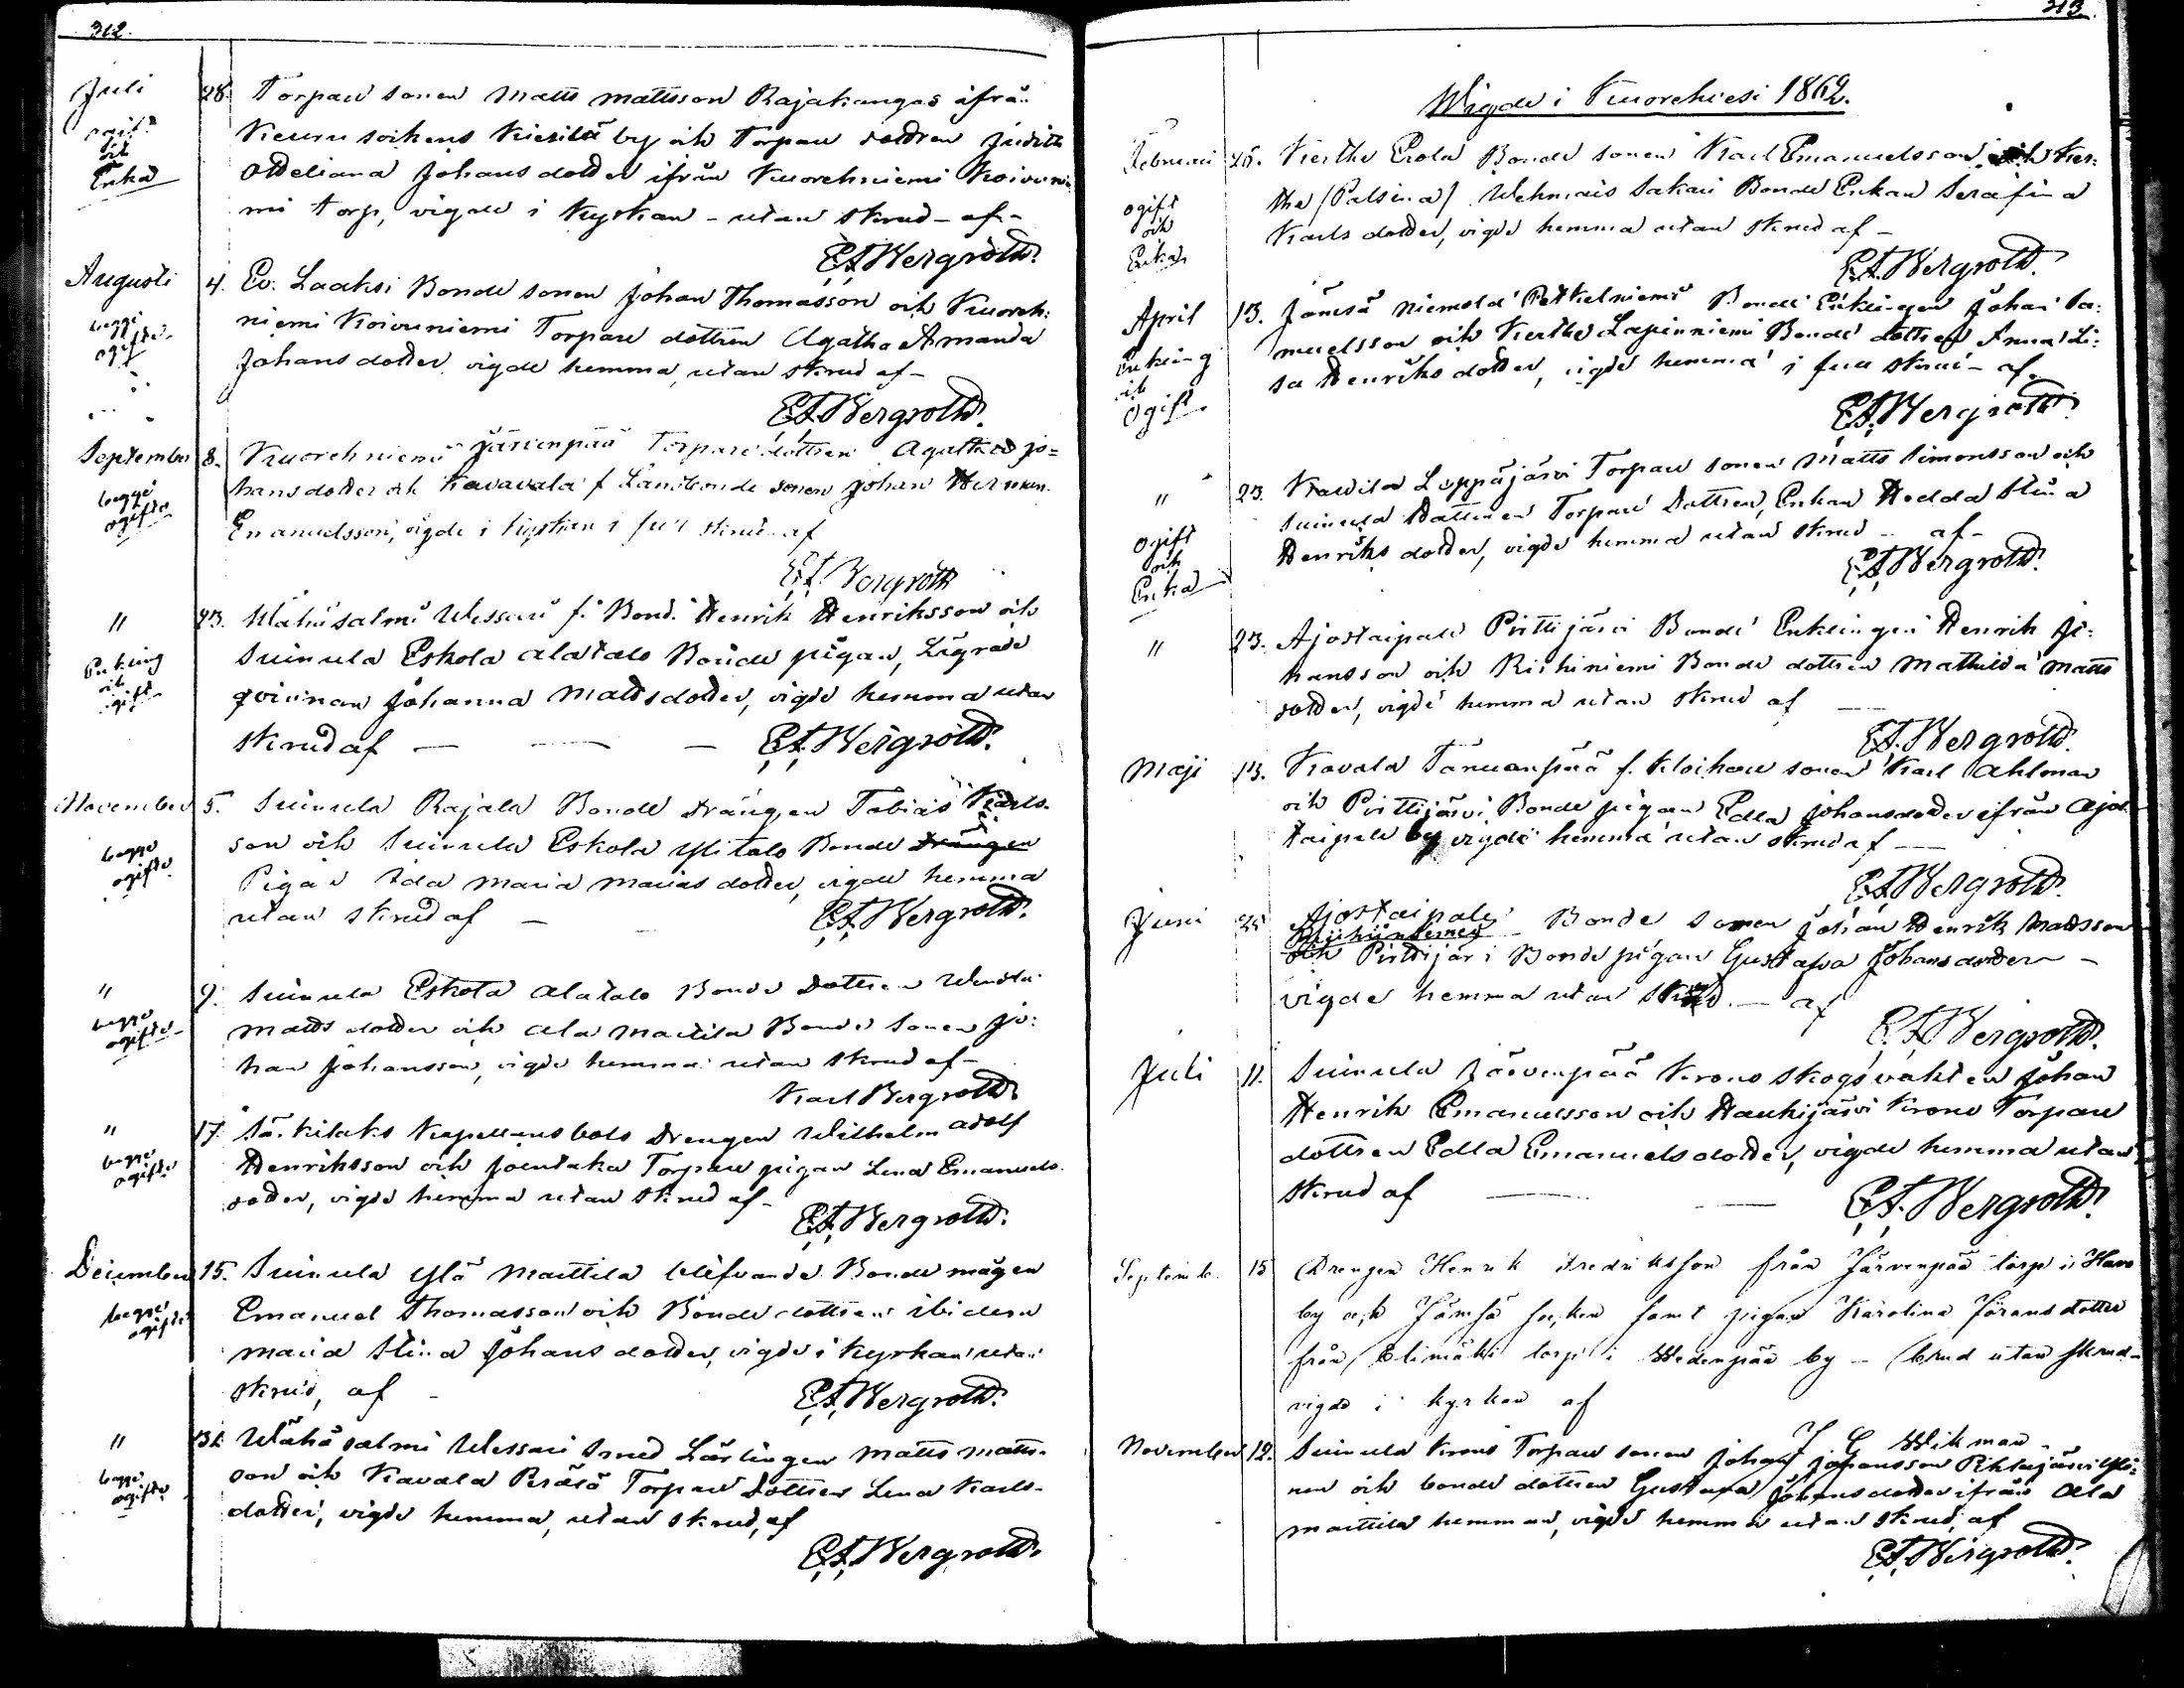 312.
Juli 28. Torpare sonen Matts Mattsson Rajakangas ifrån
ogift och Enka
Keuru sockens by och Torpare dottren Judith
Johans dotter ifrån Kuorehniemi Koivunie
mi torp, vigde i Kyrkan - utan skrud - af -
E.A. Bergroth.
Augusti 4. Ev. Laaksi Bonde sonen Johan Thomasson och Kuoreh:
begge ogifte
niemi Koivuniemi Torpare dottren Agatha Amanda
Johans dotter, vigde hemma, utan skrud af -
E.A. Bergroth.
September 8. Kuorehniemi Järvenpää Torpare dottren Agatha Jo=
begge ogifte
hans dotter och Kavavala f. Landbonde sonen Johan Herman
Emanuelsson, vigde i kyrkan i full skrud af
E.A. Bergroth
" 23. Wähäsalmi Wessari f. Bond. Henrik Henriksson och
Enkling och ogift
Suinula Eskola Alatalo Bonde pigan, Lägrade
qvinnan Johanna Matts dotter, vigde hemma utan
skrud af — — — E.A. Bergroth.
November 5. Suinula Rajala Bonde Drängen Tobias Karls-
begge ogifte
son och Suinula Eskola Ylitalo Bonde Drängen
Pigan Ida Maria Marias dotter, vigde hemma
utan skrud af — E.A. Bergroth.
" 9. Suinula Eskola Alatalo Bonde Dottren Wendla
begge ogifte
Matts dotter och Ala Mattila Bonde Sonen Jo:
han Johansson, vigde hemma utan skrud af -
Karl Bergroth
" 17. Särkilaks Kapellansbols Drengen Wilhelm Adolf
begge ogifte
Henriksson och Torpare pigan Lena Emanuels
dotter, vigde hemma utan skrud af -
E.A. Bergroth.
December 15. Suinula Ylä Mattila blifvande Bonde mågen
begge ogifte
Emanuel Thomasson och Bonde dottren ibidem
Maria Stina Johans dotter, vigde i kyrkan utan
skrud, af - E.A. Bergroth.
" 31. Wähäsalmi Wessari Smed Lärlingen Matts Matts-
begge ogifte
son och Kavala Perälä Torpare Dottren Lena Karls-
dotter, vigde hemma, utan skrud, af
E.A. Bergroth.
313.
Wigde i Kuorehvesi 1862.
Februari 25. Kerthe Erola Bonde sonen Karl Emanuelsson och Ker:
ogift och Enka
the (Palsina) Wehmais Sakari Bonde Enkan Serafina
Karls dotter, vigde hemma utan skrud af -
E.A. Bergroth.
April 13. Jämsä Niemelä Petkelniemi Bonde Enklingen Johan Sa:
Enkling och Ogift
muelsson och Kerthe Lapinniemi Bonde dottren Anna Li:
sa Henriks dotter, vigde hemma i full skrud - af -
E.A. Bergroth.
" 23. Kawila Leppäjärvi Torpare sonen Matts Simonsson och
ogift och Enka
Suinula Torpare Dottren, Enkan Hedda Stina
Henriks dotter, vigde hemma utan skrud - af -
E.A. Bergroth.
" 23. Ajostaipale Pirttijärvi Bonde Enklingen Henrik Jo:
hansson och Riihiniemi Bonde dottren Mathilda Matts
dotter, vigde hemma utan skrud af —
E.A. Bergroth.
Maji 13. Kavala f. Klockare sonen Karl Ahlman
och Pirttijärvi Bonde pigan Edla Johansdotter ifrån Ajos
taipale by vigde hemma utan skrud af —
E.A. Bergroth.
Juni 25 Ajostaipale Bonde sonen Johan Henrik Mattsson
och Pirttijärvi Bonde pigan Gustafva Johansdotter -
vigde hemma utan skrud - af
E.A. Bergroth.
Juli 11. Suinula Järvenpää Krono Skogsvakten Johan
Henrik Emanuelsson och Haukijärvi Krono Torpare
dottren Edla Emanuelsdotter, vigde hemma utan
skrud af — — E.A. Bergroth.
Septemb. 15 Drengen Henrik Fredriksson från Järvenpää torp i Havo
by och Jämsä socken samt pigan Karolina Göransdotter
från torp i Wedenpää by - brud utan skrud -
vigde i kyrkan af
J G Wikman
November 12. Suinula Krono Torpare sonen Johan Johansson Pihlajärvi Yli:
nen och bonde dottren Gustava Johansdotter ifrån Ala
Mattila hemman, vigde hemma utan skrud, af
E.A. Bergroth.